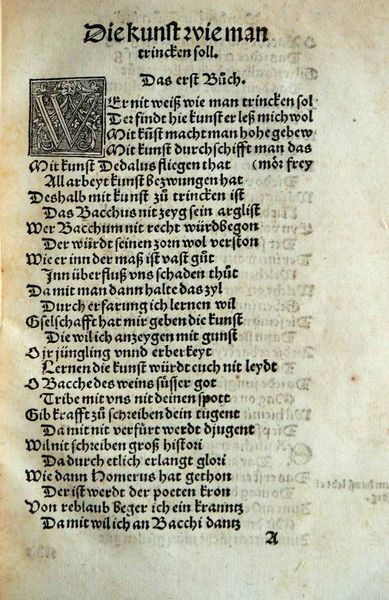 Die kunst wie man
trincken soll.
Das erst Bůch.
WEr nit weiß wie man trincken sol
Der findt hie kunst er leß mich wol
Mit kūst macht man hohe gebew
Mit kunst durchschifft man das
Mit kunst Dedalus fliegen that (mör frey
All arbeyt kunst bezwungen hat
Deshalb mit kunst zů trincken ist
Das Bacchus nit zeyg sein arglist
Wer Bacchum nit recht würdbegon
Der würdt seinen zorn wol verston
Wie er inn der maß ist vast gůt
Inn überfluß vns schaden thůt
Da mit man dann halte das zyl
Durch erfarung ich lernen wil
Gselschafft hat mir geben die kunst
Die wil ich anzeygen mit gunst
O jr jüngling vnnd erberkeyt
Lernen die kunst würdt euch nit leydt
O Bacche des weins süsser got
Tribe mit vns nit deinen spott
Gib krafft zů schreiben dein tugent
Da mit nit verfürt werdt djugent
Wil nit schreiben groß histori
Da durch etlich erlangt glori
Wie dann Homerus hat gethon
Der ist werdt der poeten kron
Von reblaub beger ich ein kranntz
Da mit wil ich an Bacchi dantz
A